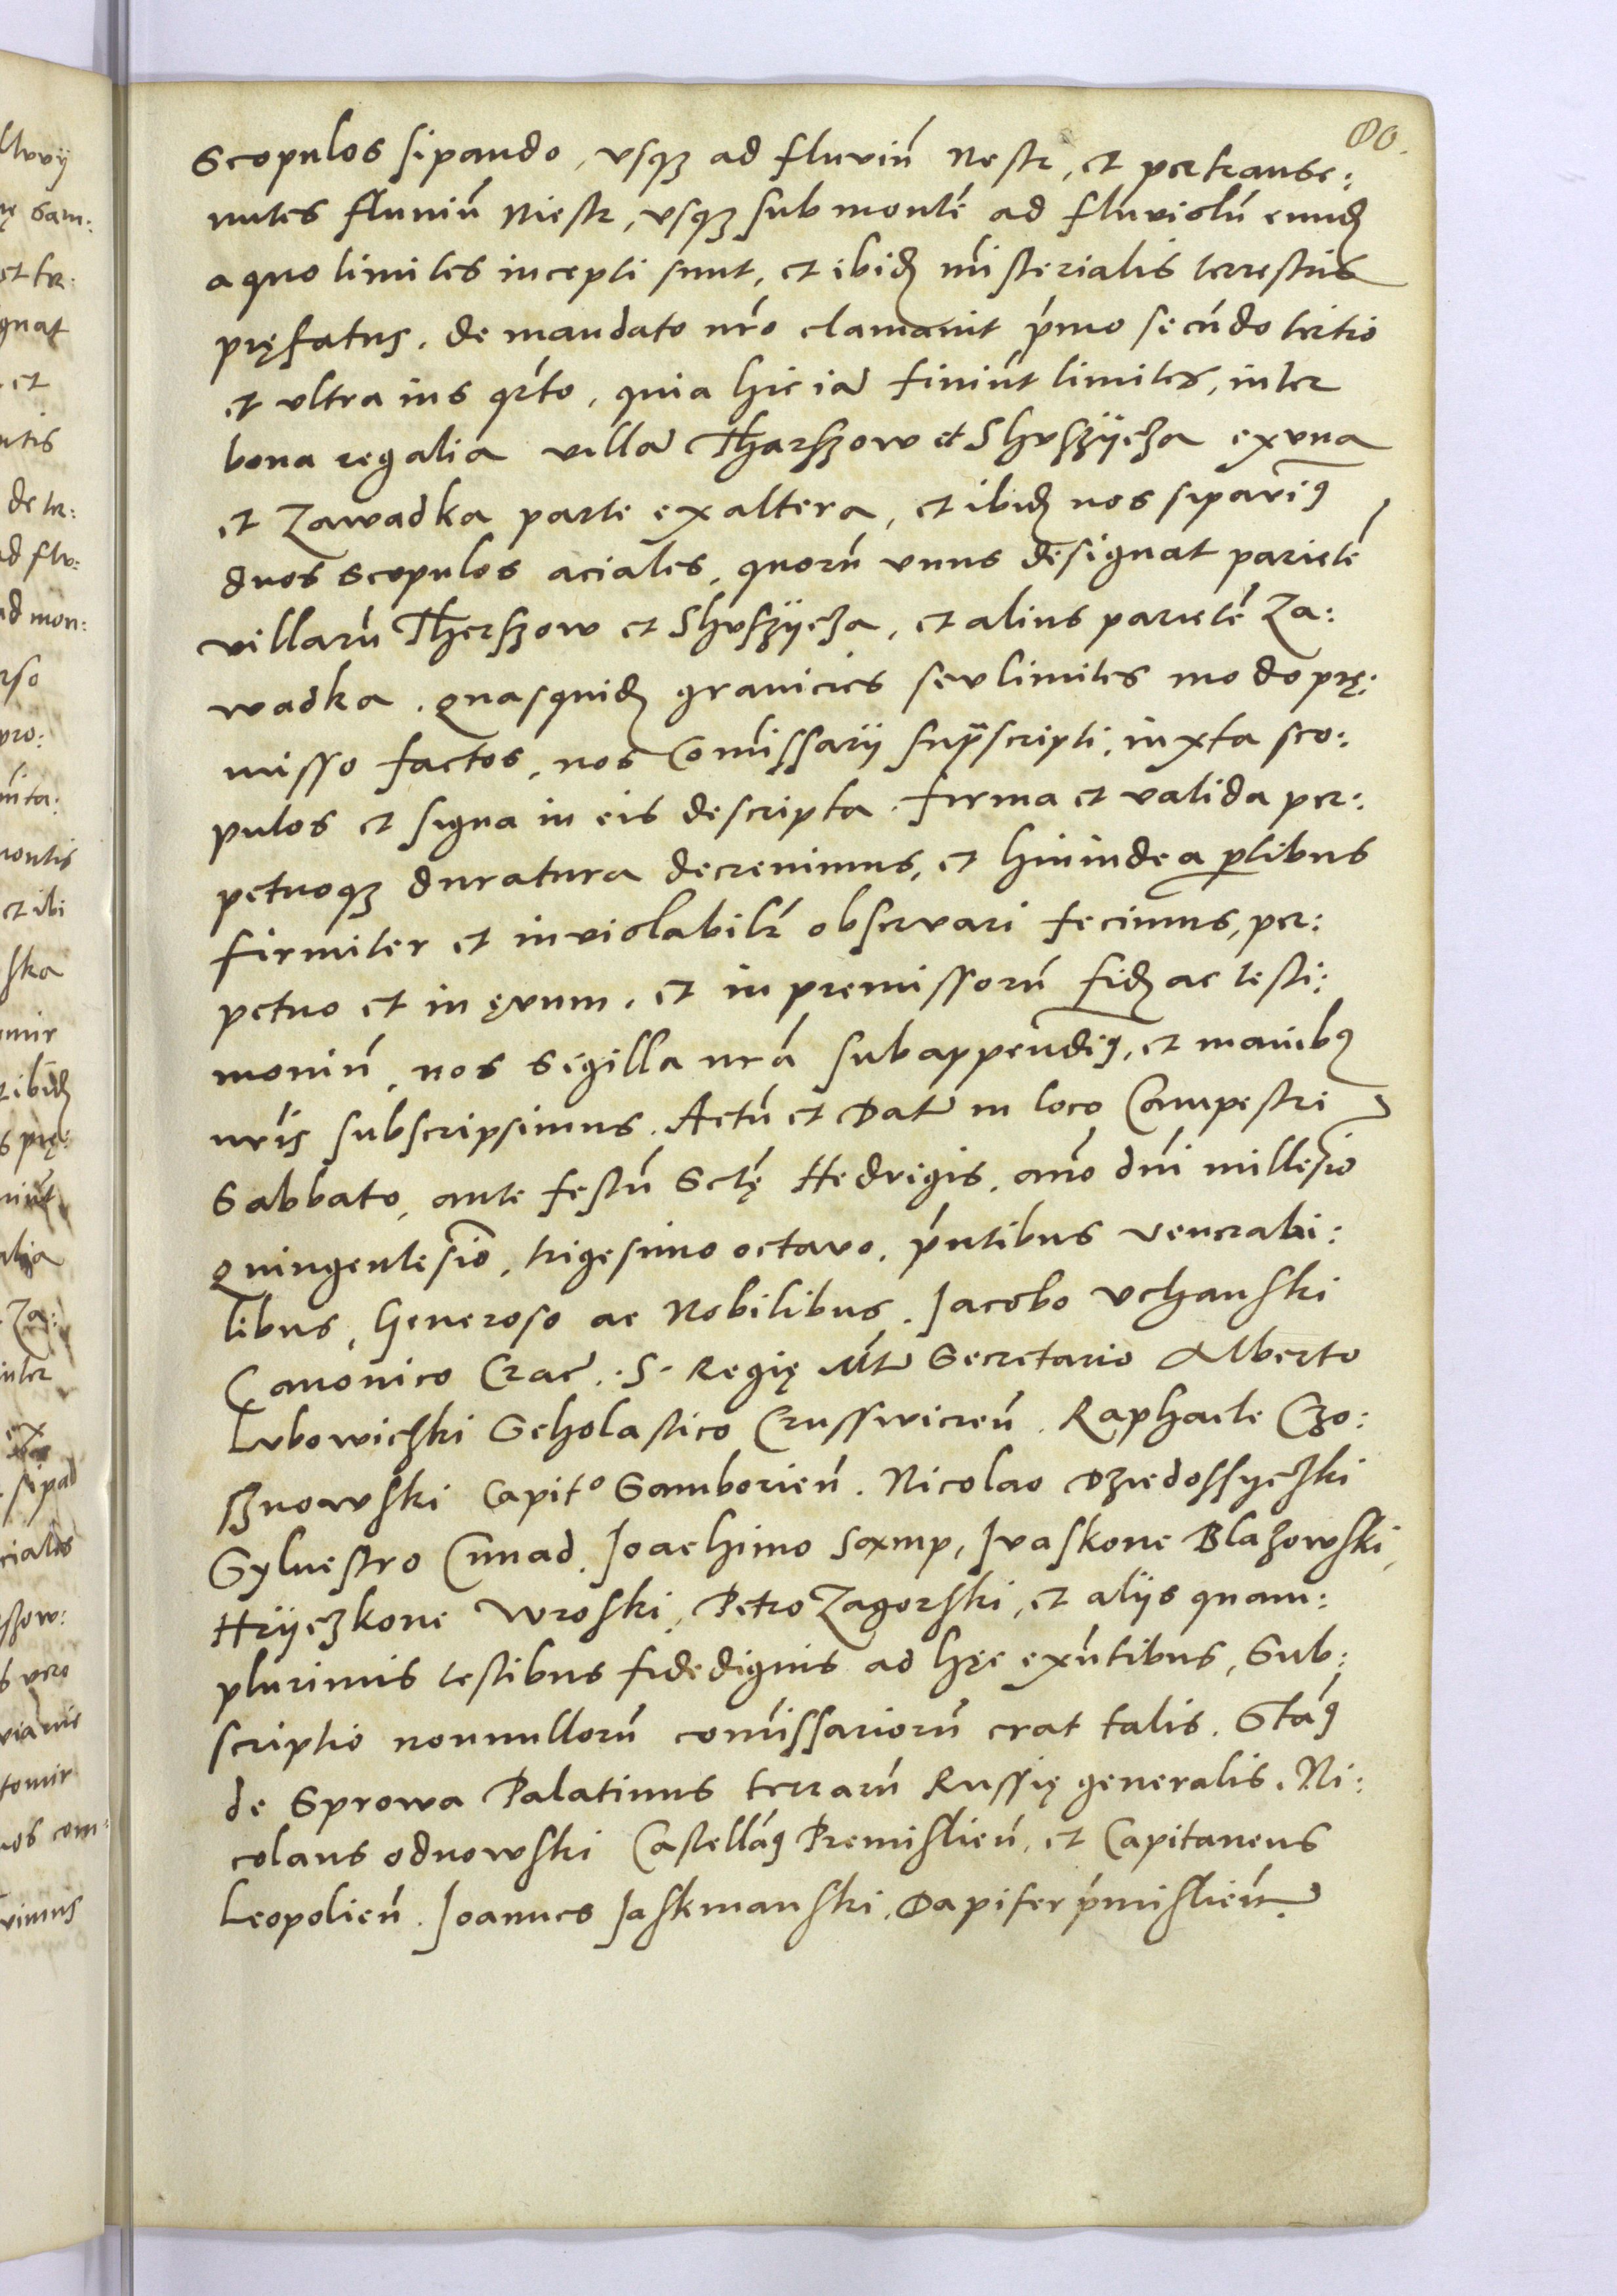 80.
Scopulos sipando, vsqȝ ad fluviū Nestr, et pertranse:
untes fluuiū Niestr, vsqȝ sub montē ad fluviolū eundȩ
a quo limites incepti sunt, et ibidȩ mīsterialis terrestris
pręfatus. de mandato nr̄o clamauit p̄mo secūdo tertio
et vltra ius qr̄to, quia hic iā finiūt limites, inter
bona regalia villā Tharszow et Shvszÿcza ex vna
et Zawadka parte ex altera, et ibidȩ nos sipavimꝰ
duos scopulos aciales, quorū vnus designat parietē
villarū Therszow et Shvszÿcza, et alius parietē Za:
wadka. Quasquidȩ granicies sev limites modo prę:
misso factos, nos Com̄issarii sup̄scripti, iuxta sco:
pulos et signa in eis descripta. firma et valida per:
petuoqȝ duratura decreuimus, et hininde a ꝑtibus
firmiter et inviolabilr̄ observari fecimus, per:
petuo et in ęvum. et in premissorū fidȩ ac testi:
moniū, nos sigilla nr̄a subappendimꝰ, et manibꝰ
nr̄is subscripsimus. Actū et Datū in loco Campestri
Sabbato, ante festū Sctę Hedvigis, anō dn̄i millesīo
quingentesīo, trigesimo octavo, p̄ntibus venerabi:
libus, Generoso ac Nobilibus. Jacobo Vchanski
Canonico Crac̄. S. Regię Mt̄ Secretario Alberto
Lubowiczki Scholastico Crusswiceñ. Raphaele Czo:
sznowski Capitº Samborieñ. Nicolao Dziedossyczki
Sylvestro Cunad. Joachimo Saxmp, Jvaskone Blazowski,
Hrÿczkone Wroski, Petro Zagorski, et alijs quam:
plurimis testibus fidedignis ad hęc exn̄tibus, Sub:
scriptio nonnullorū com̄issariorū erat talis. Stāꝰ
de Sprowa Palatinus terrarū Russię generalis. Ni:
colaus Odnowski Castellāꝰ Premislieñ, et Capitaneus
Leopolieñ. Joannes Jaskmanski. Dapifer p̄mislieñ.